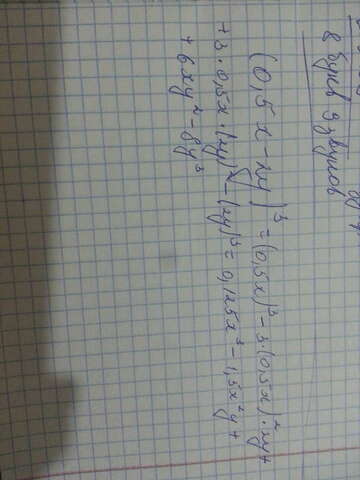 8 букв 9 звуков
(0,5x-2y)³=(0,5x)³-3·(0,5x)²·2y+
+3·0,5x·(2y)²-(2y)³=0,125x³-1,5x²y+
+6xy²-8y³